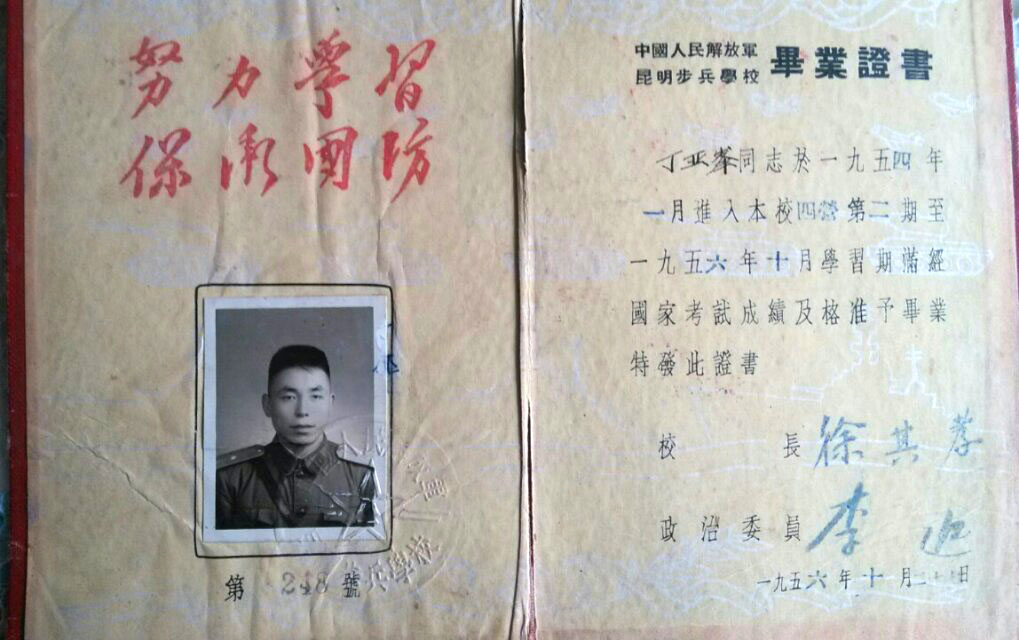 努力學習
保衛國防
第 248 號
兵學校
中國人民解放軍
昆明步兵學校
畢業證書
丁亚峯同志於一九五四年
一月進入本校四營第二期至
一九五六年十月學習期滿經
國家考試成績及格准予畢業
特發此證書
校長 徐其孝
政治委員 李
一九五六年十月二十日